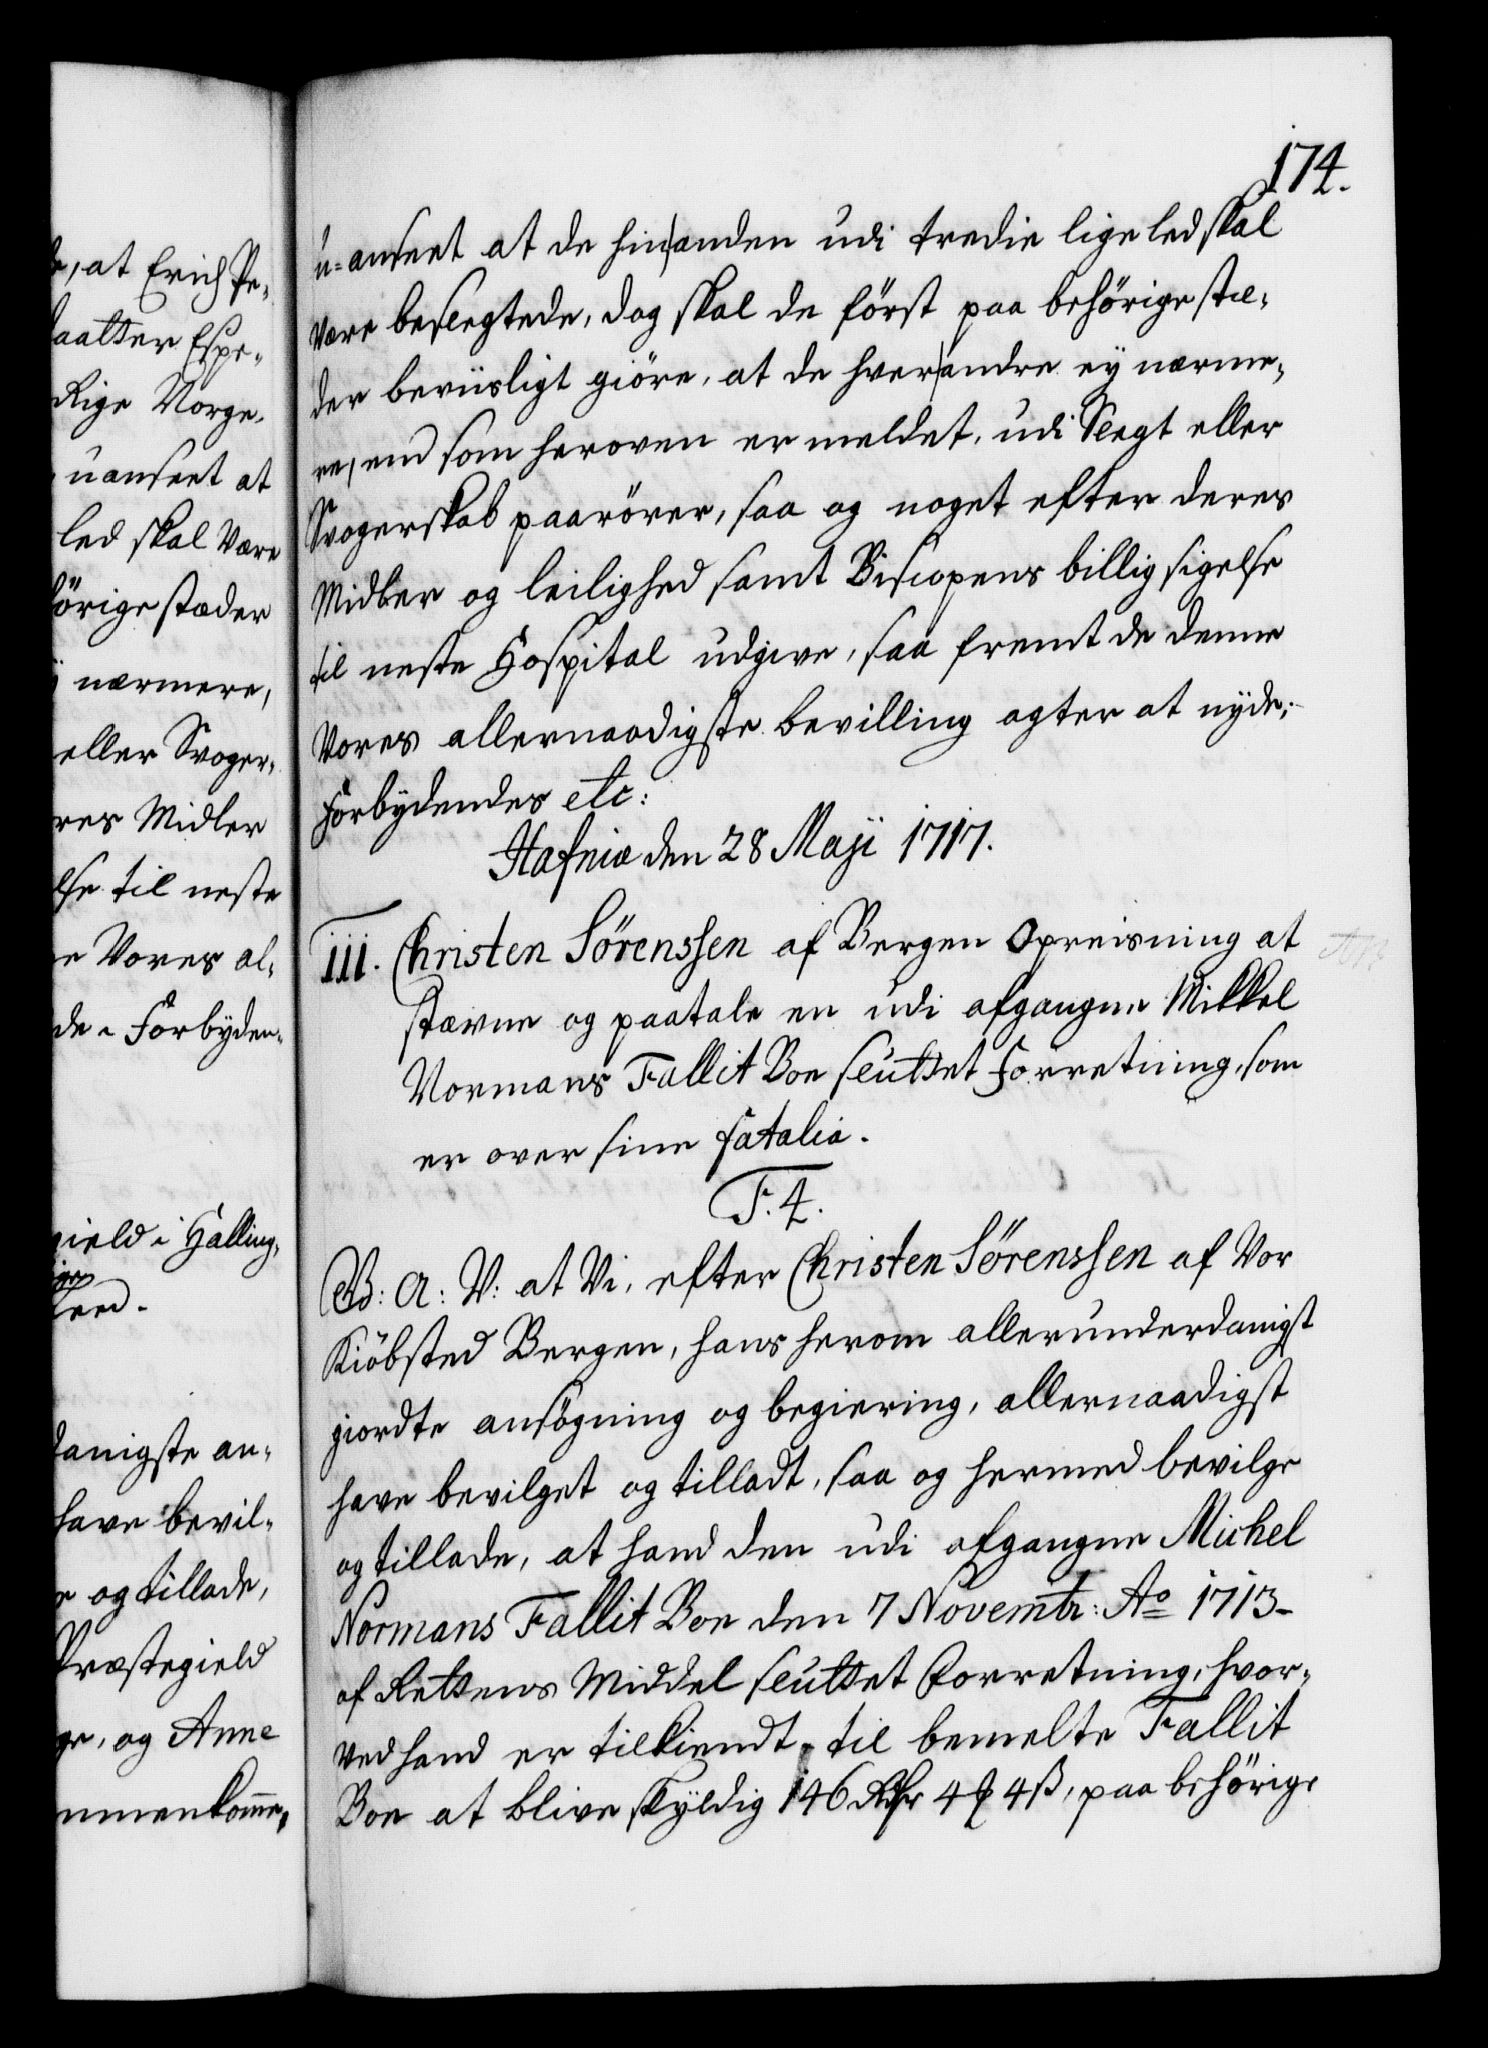 174.
u-anseet at de hinanden udi tredie lige led skal
være beslegtede, dog skal de först paa behörige stæ-
der beviisligt giöre, at de hverandre ey nærme-
re, end som heroven er meldet, udi Slegt eller
Svogerskab paarörer, saa og noget efter deres
Midler og leilighed samt Biscopens billig sigelse
til neste Hospital udgive, saa fremt de denne
Vores allernaadigste bevilling agter at nyde;
Forbydendes etc:
Hafniæ den 28 Maji 1717.
111. Christen Sørenssen af Bergen Opreisning at
stævne og paatale en udi afgangne Mikkel
Normans Fallit Boe sluttet Forretning, som
er over sine fatalia.
F. 4.
G: A: V: at Vi, efter Christen Sørenssen af Vor
Kiöbsted Bergen, hans herom allerunderdanigst
giordte ansögning og begiering, allernaadigst
have bevilget og tilladt, saa og hermed bevilge
og tillade, at hand den udi afgangne Michel
Normans Fallit Boe den 7 Novembr: Ao 1713
af Rettens Middel sluttet Forretning, hvor-
ved hand er tilkiendt til bemelte Fallit
Boe at blive skyldig 146 Rdr 4 ꝑ 4 ß, paa behörige
, at Erich Pe-
daatter Espe-
Rige Norge.
uanseet at
led skal være
hörige stæder
nærmere,
eller Svoger-
res Midler
lse til neste
e Vores al-
de. Forbyden-
gield i Halling-
danigste an-
have bevil-
e og tillade,
Præstegield
ge, og Anne
mmenkomme,